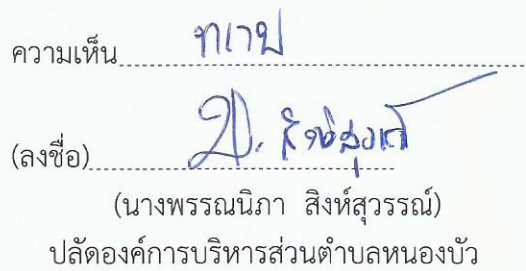 ความเห็น ทราบ
(ลงชื่อ)
(นางพรรณนิภา สิงห์สุวรรณ์)
ปลัดองค์การบริหารส่วนตำบลหนองบัว